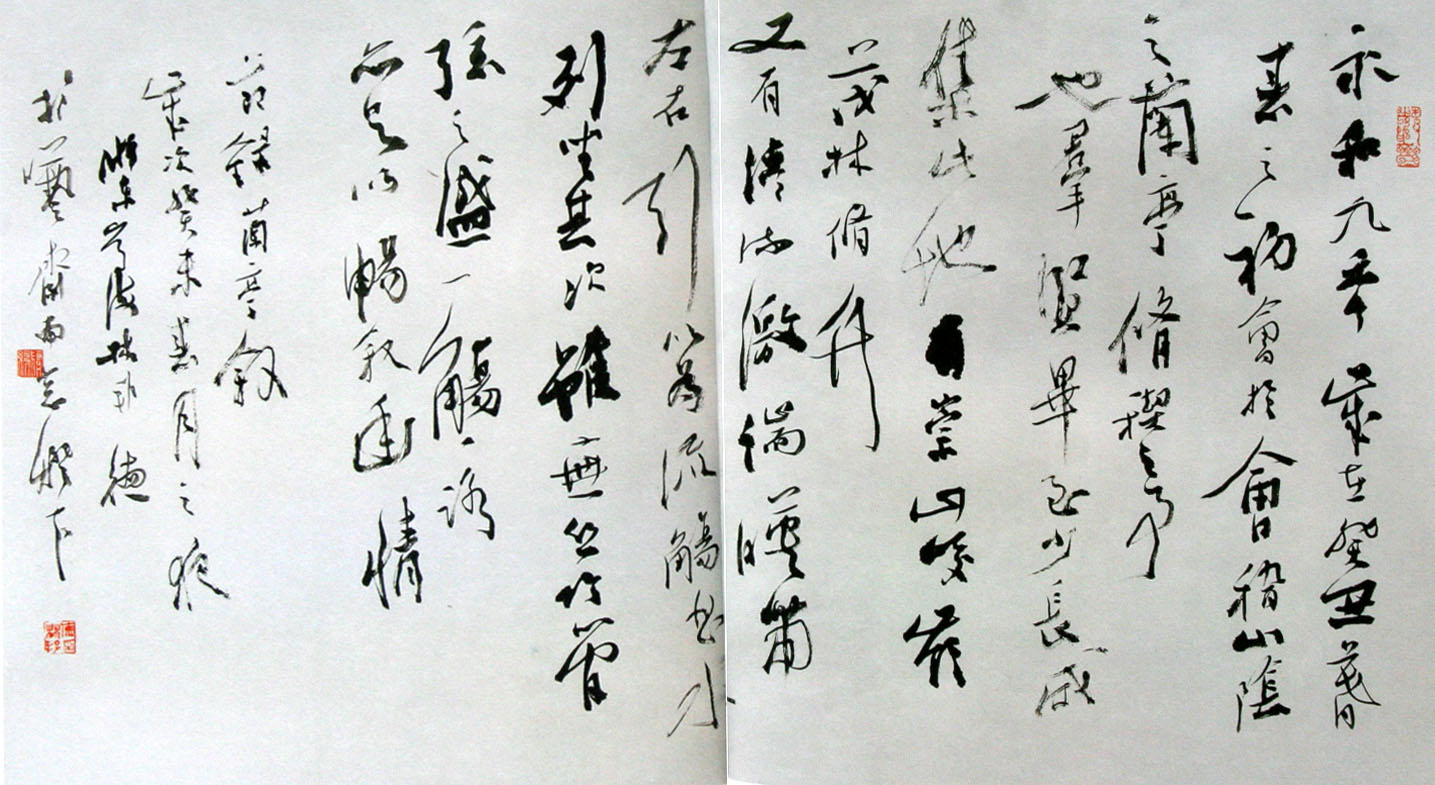 永和九年歲在癸丑暮
春之初會於會稽山陰
之蘭亭脩禊事
也羣賢畢至少長咸
集此地有崇山峻嶺
茂林脩竹
又有清流激湍暎帶
左右引以為流觴曲水
列坐其次雖無絲竹管
弦之盛一觴一詠
亦足以暢敘幽情
節錄蘭亭敘
歲次癸未春月之夜
德
於藝齋南窗燈下